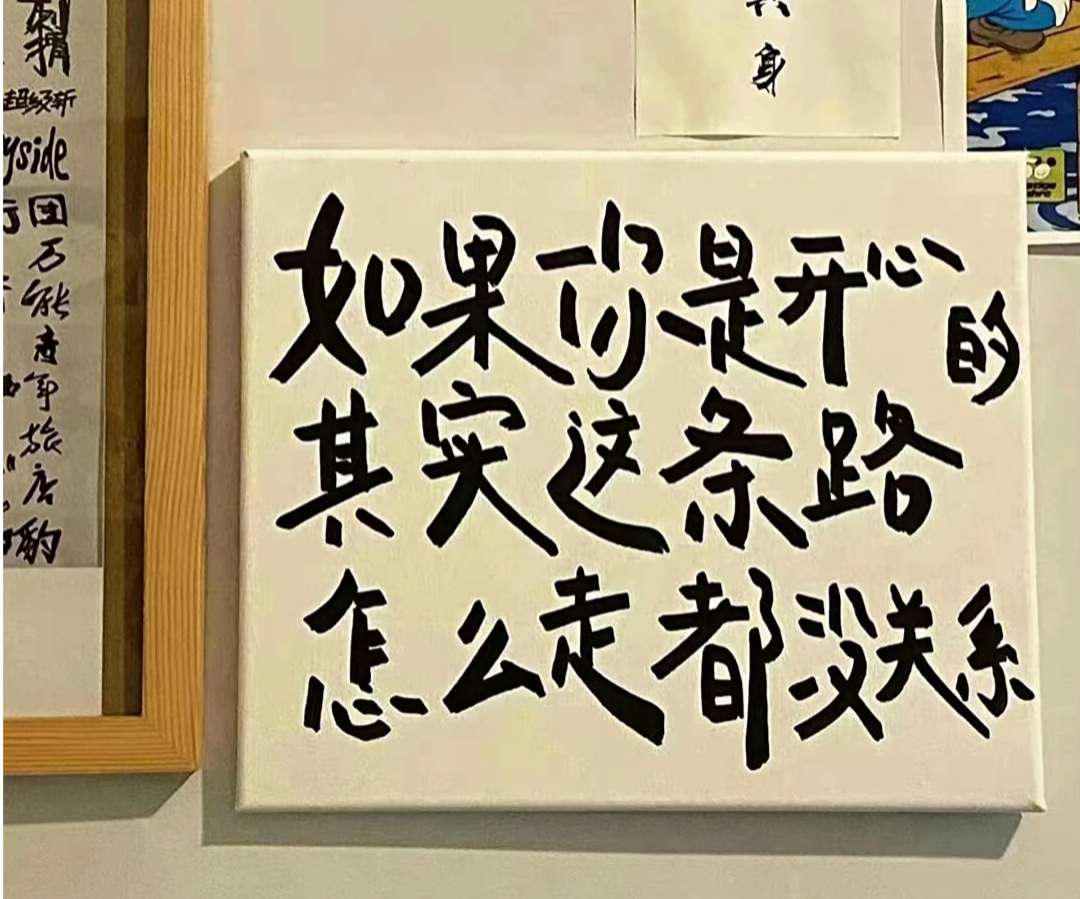 刺捐
超级新
yside
团
万
能
青
年
旅
店
酌
身
如果你是开心的
其实这条路
怎么走都没关系